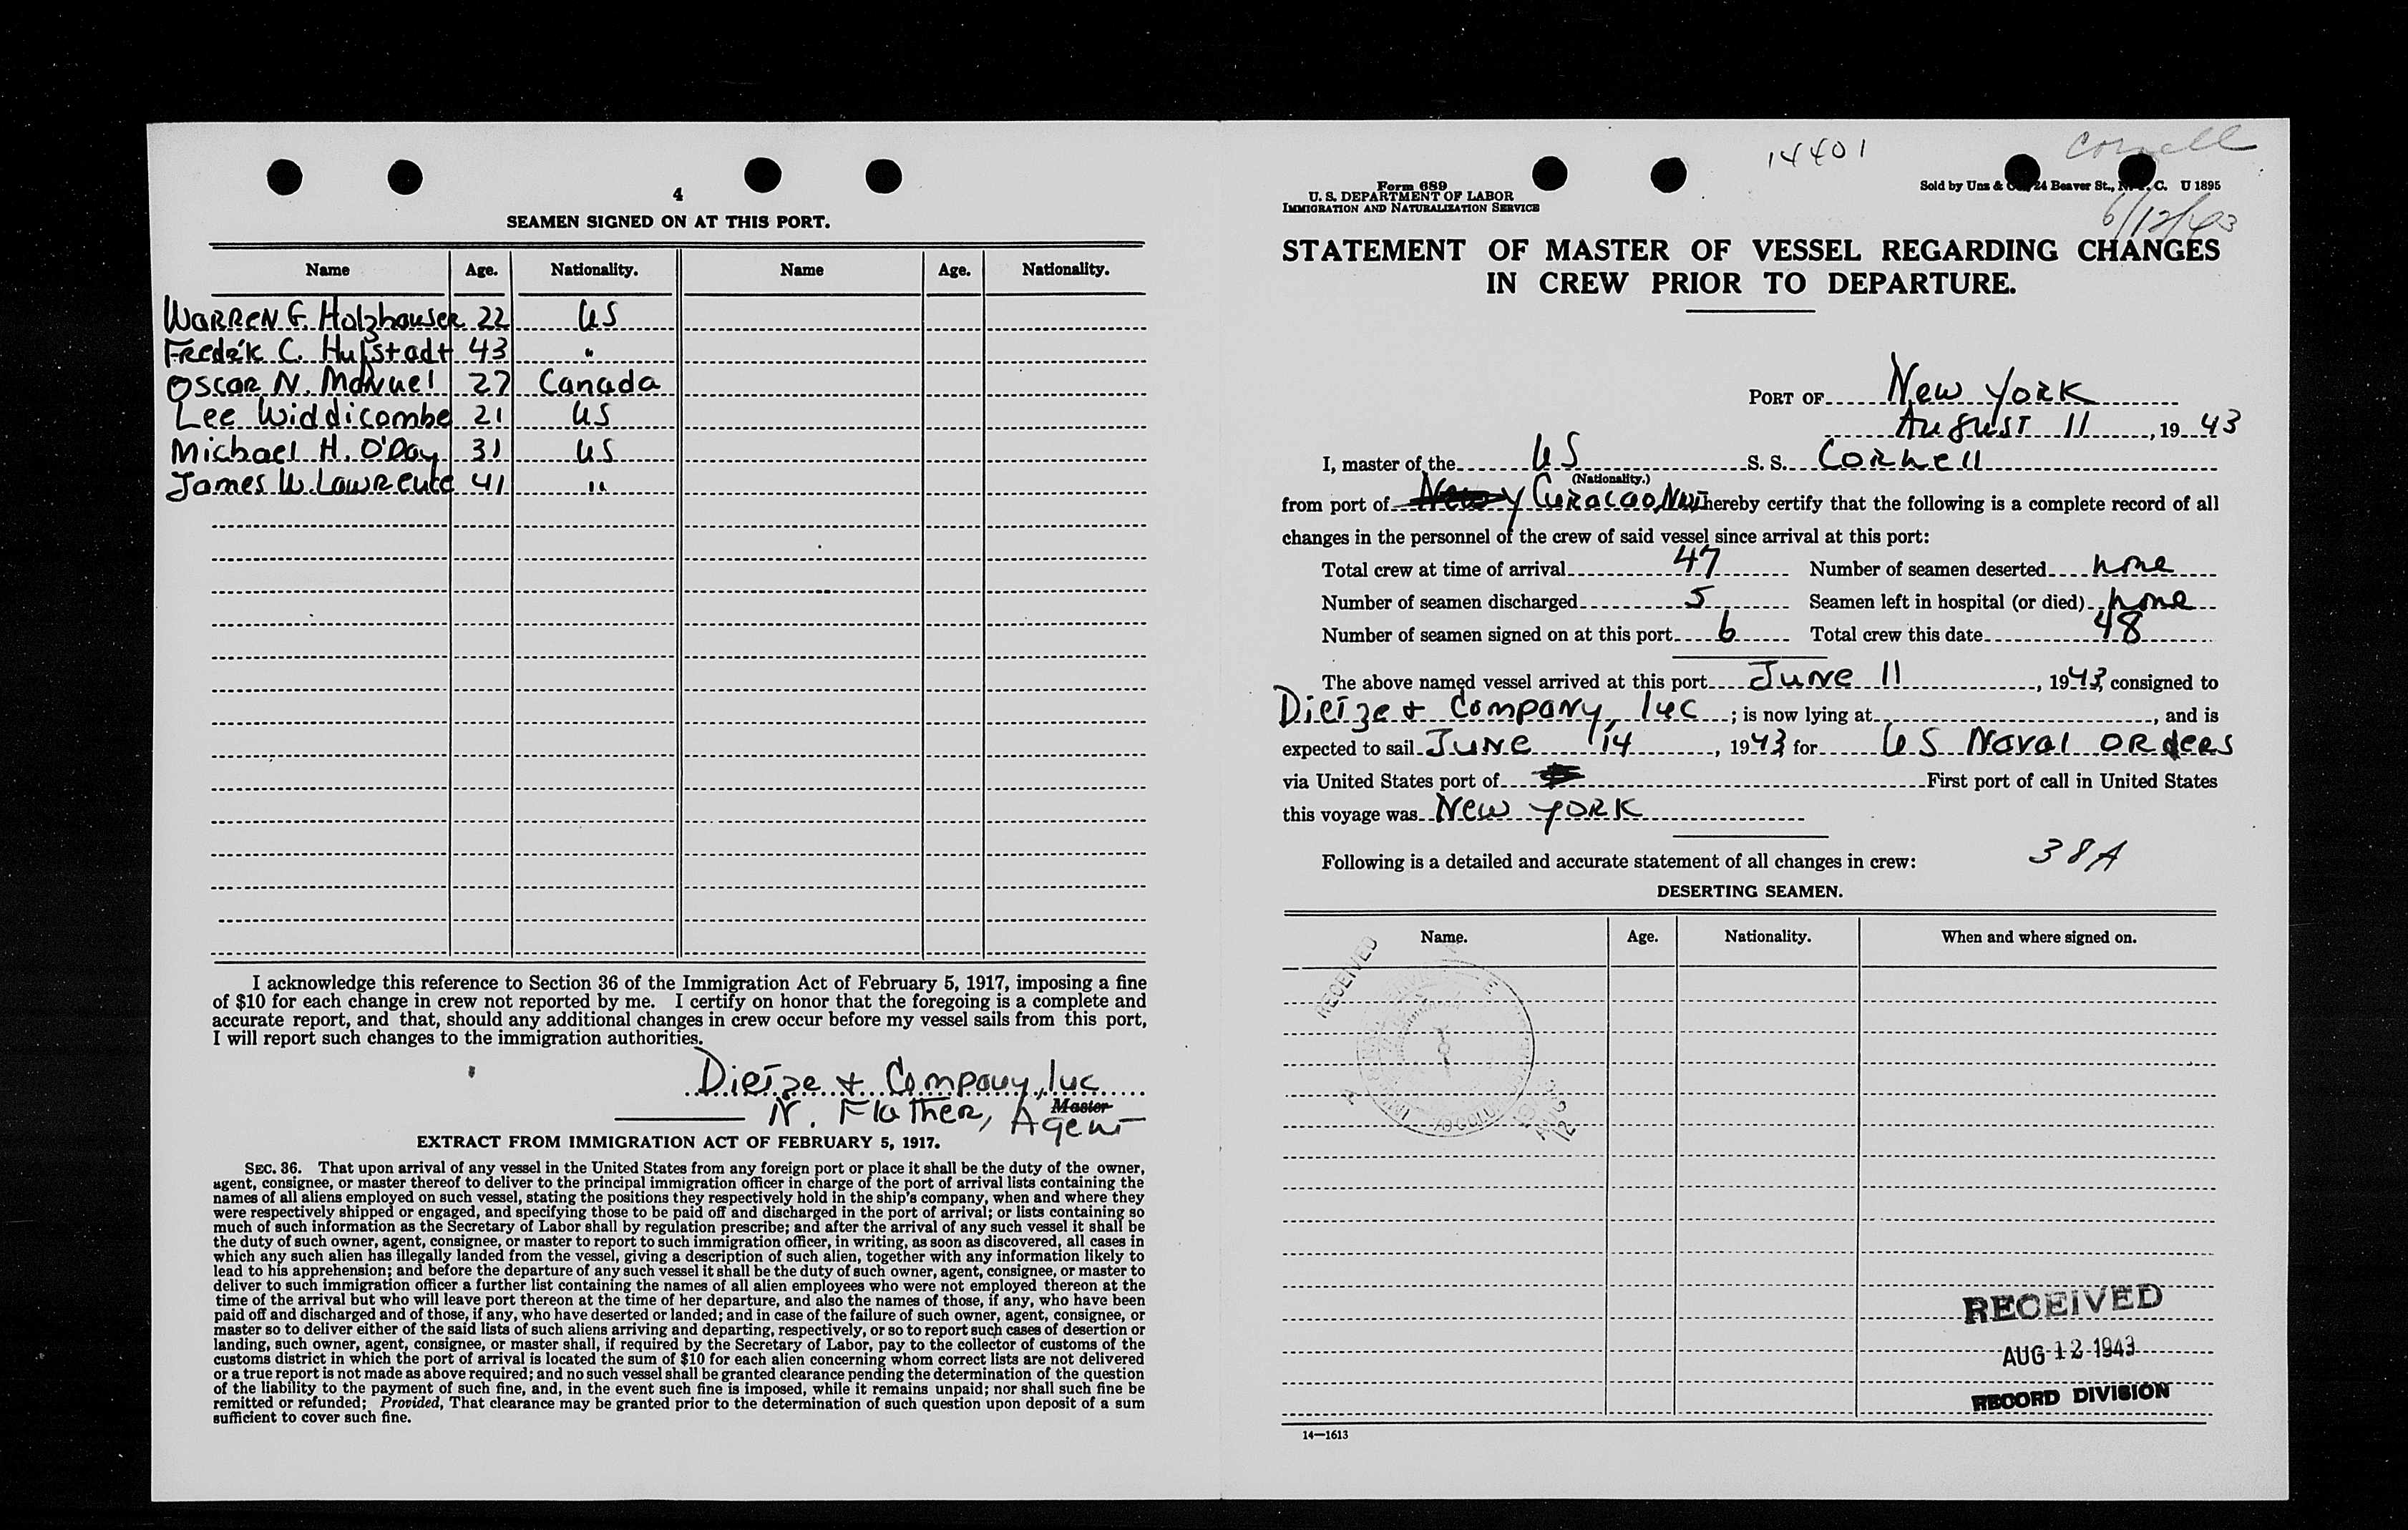 4
SEAMEN SIGNED ON AT THIS PORT.
Name Age. Nationality. Name Age. Nationality.
Warren G. Holzhauser 22 US
Fredrk C. Hufstadt 43 "
Oscar N. Manuel 27 Canada
Lee Widdicombe 21 US
Michael H. O'Day 31 US
James W. Lawrence 41 "
I acknowledge this reference to Section 36 of the Immigration Act of February 5, 1917, imposing a fine
of $10 for each change in crew not reported by me. I certify on honor that the foregoing is a complete and
accurate report, and that, should any additional changes in crew occur before my vessel sails from this port,
I will report such changes to the immigration authorities.
Dietze & Company, Inc
N. Flather, Agent
Master
EXTRACT FROM IMMIGRATION ACT OF FEBRUARY 5, 1917.
SEC. 36. That upon arrival of any vessel in the United States from any foreign port or place it shall be the duty of the owner,
agent, consignee, or master thereof to deliver to the principal immigration officer in charge of the port of arrival lists containing the
names of all aliens employed on such vessel, stating the positions they respectively hold in the ship's company, when and where they
were respectively shipped or engaged, and specifying those to be paid off and discharged in the port of arrival; or lists containing so
much of such information as the Secretary of Labor shall by regulation prescribe; and after the arrival of any such vessel it shall be
the duty of such owner, agent, consignee, or master to report to such immigration officer, in writing, as soon as discovered, all cases in
which any such alien has illegally landed from the vessel, giving a description of such alien, together with any information likely to
lead to his apprehension; and before the departure of any such vessel it shall be the duty of such owner, agent, consignee, or master to
deliver to such immigration officer a further list containing the names of all alien employees who were not employed thereon at the
time of the arrival but who will leave port thereon at the time of her departure, and also the names of those, if any, who have been
paid off and discharged and of those, if any, who have deserted or landed; and in case of the failure of such owner, agent, consignee, or
master so to deliver either of the said lists of such aliens arriving and departing, respectively, or so to report such cases of desertion or
landing, such owner, agent, consignee, or master shall, if required by the Secretary of Labor, pay to the collector of customs of the
customs district in which the port of arrival is located the sum of $10 for each alien concerning whom correct lists are not delivered
or a true report is not made as above required; and no such vessel shall be granted clearance pending the determination of the question
of the liability to the payment of such fine, and, in the event such fine is imposed, while it remains unpaid; nor shall such fine be
remitted or refunded; Provided, That clearance may be granted prior to the determination of such question upon deposit of a sum
sufficient to cover such fine.
14401
Cornell
Form 689
U. S. DEPARTMENT OF LABOR
IMMIGRATION AND NATURALIZATION SERVICE
Sold by Unz & 24 Beaver St., C. U 1895
6/12/43
STATEMENT OF MASTER OF VESSEL REGARDING CHANGES
IN CREW PRIOR TO DEPARTURE.
PORT OF New York
August 11, 1943
I, master of the US S. S. Cornell
(Nationality.)
from port of Curacao, NWI hereby certify that the following is a complete record of all
changes in the personnel of the crew of said vessel since arrival at this port:
Total crew at time of arrival 47 Number of seamen deserted none
Number of seamen discharged 5 Seamen left in hospital (or died) none
Number of seamen signed on at this port 6 Total crew this date 48
The above named vessel arrived at this port June 11, 1943, consigned to
Dietze & Company, Inc; is now lying at , and is
expected to sail June 14, 1943, for US Naval Orders
via United States port of First port of call in United States
this voyage was New York
Following is a detailed and accurate statement of all changes in crew: 38A
DESERTING SEAMEN.
Name. Age. Nationality. When and where signed on.
RECEIVED
AUG 12
RECEIVED
AUG 12 1943
RECORD DIVISION
14—1613